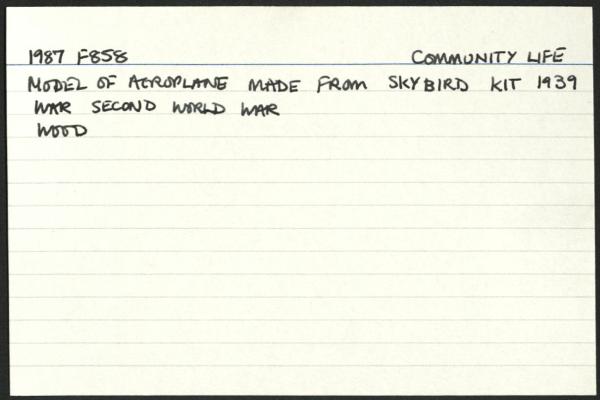 1987 F858 COMMUNITY LIFE
MODEL OF AEROPLANE MADE FROM SKYBIRD KIT 1939
WAR SECOND WORLD WAR
WOOD